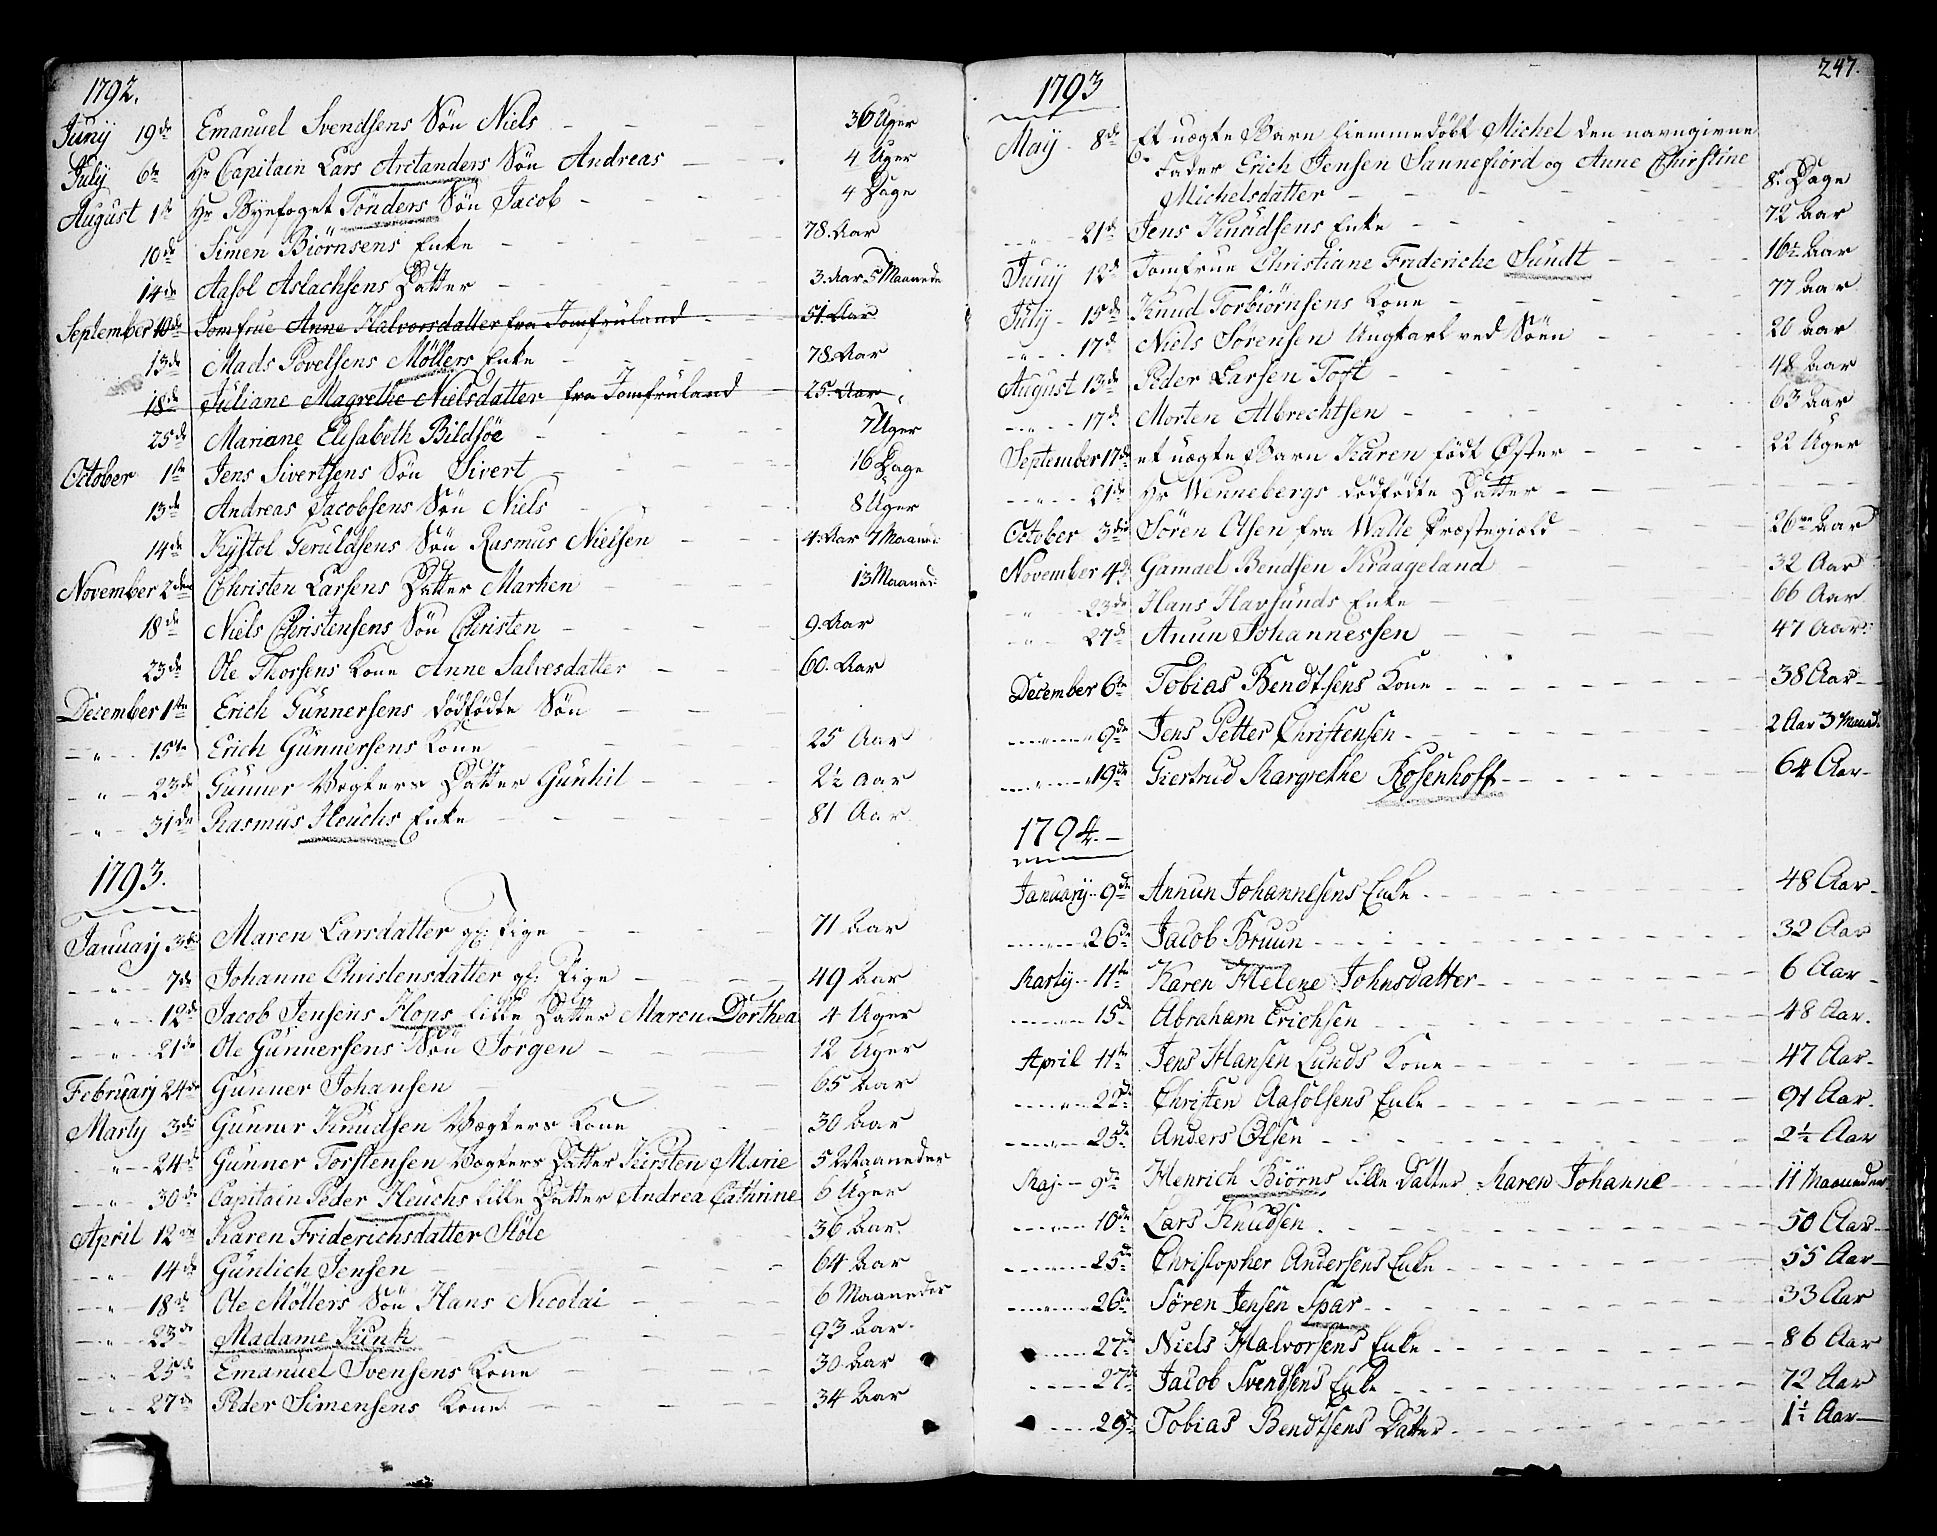 1792.
Junij 19de Emanuel Svendsens Søn Niels 36 Uger
July 6te Hr Capitain Lars Arctanders Søn Andreas 4 Uger
August 1te Hr Byefoget Tönders Søn Jacob 4 Dage
10de Simen Biörnsens Enke 78. Aar
14de Aasol Aslachsens Datter 3. Aar 5 Maanede
September 10de Jomfrue Anne Halvorsdatter fra Jomfruland 51. Aar
13de Mads Povelsens Möllers Enke 78. Aar
18de Juliane Magrethe Nielsdatter fra Jomfruland 25. Aar
25de Mariane Elisabeth Bildsöe 7 Uger
October 1te Jens Sivertsens Søn Sivert 16 Dage
13de Andreas Jacobsens Søn Niels 8 Uger
14de Kystol Geruldsens Søn Rasmus Nielsen 4. Aar 7 Maaned:
November 2den Christen Larsens Datter Marhen 13 Maaned:
18de Niels Christensens Søn Christen 9. Aar
23de Ole Thorsens Kone Anne Salvesdatter 60. Aar
December 1te Erich Gunnersens dödfödte Søn
15te Erich Gunnersens Kone 25 Aar
23de Gunner Vægters Datter Gunhil 2½ Aar
31de Rasmus Heuchs Enke 81 Aar
1793.
January 3de Maren Larsdatter gl: Pige 71 Aar
7de Johanne Christensdatter gl: Pige 49 Aar
12de Jacob Jensens Hops lille Datter Maren Dorthea 4 Uger
21de Ole Gunnersens Søn Jörgen 12 Uger
February 24de Gunner Johansen 65 Aar
Marty 3de Gunner Knudsen Vægters Kone 30 Aar
24de Gunner Torstensen Vægters Datter Kirsten Marie 5 Maaneder
30de Capitain Peder Heuchs lille Datter Andrea Cathrine 6 Uger
April 12te Karen Friderichsdatter Stöle 36 Aar
14de Gunlich Jensen 64 Aar
18de Ole Möllers Søn Hans Nicolai 6 Maaneder
23de Madame Kunh 93 Aar
25de Emanuel Svensens Kone 30 Aar
27de Peder Simensens Kone 34 Aar
247.
1793
May 8de Et uægte Barn hiemmedöbt Michel den navngivne
Fader Erich Jensen Sannefiord og Anne Chirstine
Michelsdatter 8. Dage
21de Jens Knudsens Enke 72 Aar
Junij 12d Jomfrue Christiane Frideriche Sundt 16½ Aar
July 15de Knud Torbiörnsens Kone 77 Aar
17d Niels Sörensen Ungkarl ved Söen 20 Aar
August 13de Peder Larsen Toft 48 Aar
17d Morten Albrechtsen 63 Aar
September 17de et uægte Barn Karen födt Öster 22 Uger
21de Hr Wennebergs dödfödte Datter
October 3die Sören Olsen fra Walle Præstegiold 26 Aar
November 4de Gamael Bendsen Kraageland 32 Aar
23de Hans Havsunds Enke 66 Aar
27de Anun Johannessen 47 Aar
December 6te Tobias Bendtsens Kone 38 Aar
9de Jens Petter Christensen 2 Aar 3 Maand.
19de Giertrud Margrethe Rosenhoff 64 Aar
1794.
January 9de Annun Johannesens Enke 48 Aar
26de Jacob Bruun 32 Aar
Marty 11te Karen Helene Johnsdatter 6 Aar
15de Abraham Erichsen 48 Aar.
April 11te Jens Hansen Lunds Kone 47 Aar
22de Christen Aasolsens Enke 91 Aar.
25de Anders Olsen 2½ Aar
Maj 9de Henrich Biörns lille Datter Maren Johanne 11 Maaneder
10de Lars Knudsen 50 Aar
25de Christopher Andersens Enke 55 Aar
26de Sören Jensen Spar 33 Aar
27de Niels Halvorsens Enke 86 Aar
27de Jacob Svendsens Enke 72 Aar
29de Tobias Bendtsens Datter 1½ Aar